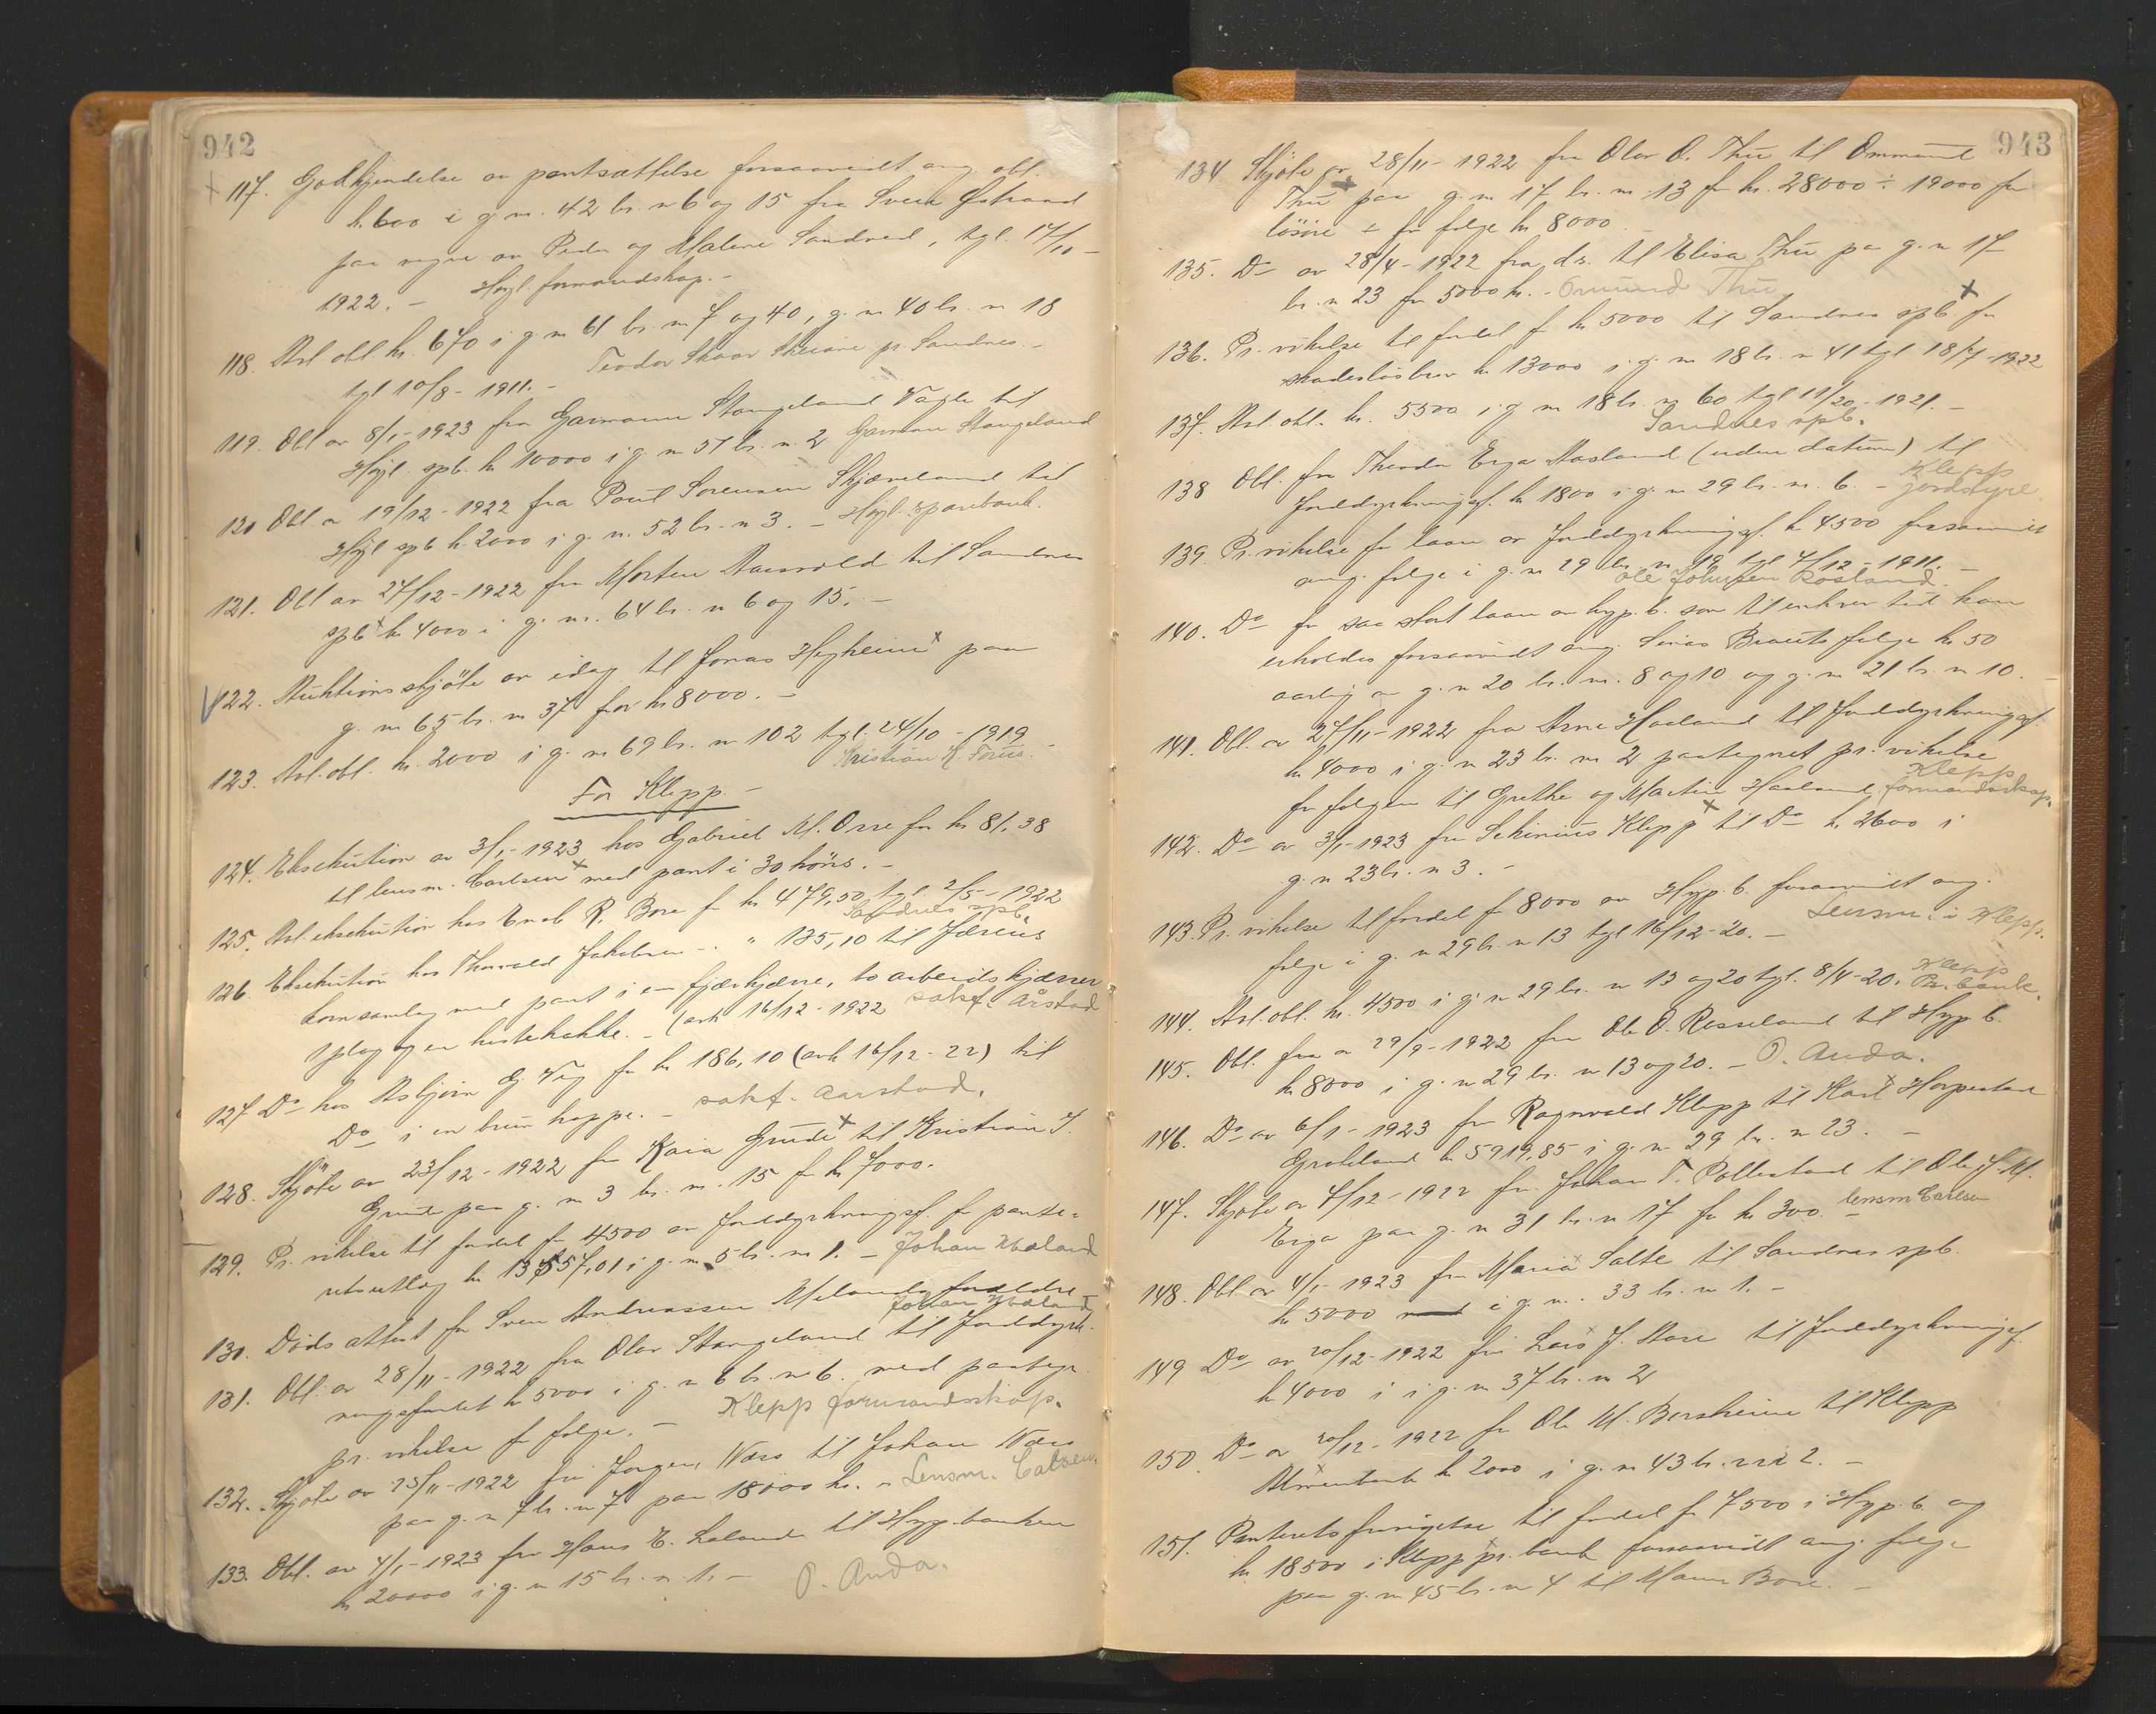 942
117. Godkjendelse av pantsættelse forsaavidt ang. obl.
k. 600 i g. nr. 42 br. n 6 og 15 fra Svein Østraad
paa vegne av Peder og Malene Sandved, tgl. 14/10 -
1922. - Høyl. formandskap. -
118. Avl. obl. kr. 670 i g. nr 61 br. nr 7 og 40, g. nr 40 br. nr 18
tgl 10/8 - 1911. - Teodor Skaar Skeiane pr. Sandnes. -
119. Obl av 8/1 - 1923 fra Garmann Stangeland Vagle til
Høyl. spb. kr 10000 i g. nr 51 br. n. 2 Garman Stangeland
120 Obl. a 19/12 - 1922 fra Paul Sørensen Skjæveland til
Høyl spb k. 2000 i g. n. 52 br. n 3. - Høyl. sparebank.
121. Obl av 27/12 - 1922 fra Morten til Sandnes
spb kr 4000 i g. nr. 64 br. n 6 og 15. -
122. Auktionsskjøte av idag til Jonas Høyheim paa
g. nr 65 br. nr 37 for kr 8000. -
123. Avl. obl. kr. 2000 i g. nr 69 br. nr 102 tgl. 24/10 - 1919
Kristian K. Forus.
For Klepp. -
124. Eksekution av 3/1 - 1923 hos Gabriel M. Orre for kr 81,38
til lensm. Carlsen med pant i 30 høns. -
125. Avl. eksekution hos Enok R. Bore f kr 479,50 tgl. 2/5 - 1922
Sandnes spb.
126. Eksekution hos Thorvald Jakobsen - " 135,10 til Jærens
kornsamlag med pant i en fjærkjærre, to arbeidskjærrer
1 plog og en hestehakke. - (avh 16/12 - 1922 sakf. Årstad
127. Do hos Asbjørn G. Vig for kr 186,10 (avh 16/12 - 22) til
Do i en brun hoppe. - sakf. Aarstad.
128. Skjøte av 23/12 - 1922 fra Kaia Grude til Kristian T.
Grude paa g. nr 3 br. nr. 15 f kr 7000.
129. Pr. vikelse til fordel for 4500 av Jorddyrkningsf. for pante-
retsutlæg kr 13557,01 i g. nr 5 br. nr 1. - Johan Mæland
130. Dødsattest for Sven Andreassen Mælands forældre
Johan Mæland
131. Obl. av 28/11 - 1922 fra Olav Stangeland til Jorddyrk-
ningsfondet kr 5000 i g. n 6 br. nr 6. med paategn.
pr. vikelse for følge. - Klepp formandsskap.
132. Skjøte av 25/11 - 1922 fra Jørgen Næss til Johan Næss
paa g. n 7 br. n 7 paa 18000 kr. - Lensm. Calsen.
133. Obl. av 4/1 - 1923 fra Hans E. Laland til Hyp. banken
kr 20000 i g. n 15 br. n. 1. - O. Anda.
943
134 Skjøte av 28/11 - 1922 fra Olav O. Thu til Ommund
Thu paa g. n 17 br. nr. 13 for kr. 28000 ÷ 19000 for
løsøre ÷ for følge kr 8000
135. Do av 28/4 - 1922 fra ds. til Elisa Thu paa g. n 17
br. n 23 for 5000 kr. - Ommund Thu
136. Pr. vikelse til fordel f kr 5000 til Sandnes spb for
skadesløsbrev kr 13000 i g. nr 18 br. n 41 tgl 18/7 - 1922
137. Avl. obl. kr. 5500 i g nr 18 br. nr 60 tgl 11/20 - 1921. -
Sandnes spb.
138 Obl. fra Theodor Erga Aasland (uden datum) til
Jorddyrkningsf. kr 1800 i g. n 29 br. nr. 6. - Klepp jordstyre.
139. Pr. vikelse for laan av Jorddyrkningsf. kr 4500 forsaavidt
ang. følge i g. nr 29 br. n 19 tgl 4/12 - 1911. -
Ole Johnsen Rosland.
140. Do for saa stort laan av hyp. b. som til enhver tid kan
erholdes forsaavidt ang. Sines Brauts følge kr 50
aarlig av g. n 20 br. nr. 8 og 10 og g. nr 21 br. n 10.
141. Obl. av 27/11 - 1922 fra Arne Haaland til Jorddyrkningsf.
kr 4000 i g. n 23 br. nr 2 paategnet pr. vikelse
for følgen til Grethe og Martin Haaland. Klepp formandsskap.
142. Do av 3/1 - 1923 fra Sekinius Klepp til Do k. 2600 i
g. n 23 br. n 3. -
143. Pr. vikelse til fordel for 8000 av Hyp. b. forsaavidt ang.
følge i g. n 29 br. n 13 tgl 16/12 - 20. - Lensm. i Klepp.
144. Avl. obl. kr. 4500 i g. n 29 br. n 13 og 20 tgl. 8/4 - 20. Klepp Pr. bank.
145. Obl. fra a 29/9 - 1922 fra Ole O. Rosseland til Hyp b.
kr 8000 i g. n 29 br. n 13 og 20. - O. Anda.
146. Do av 6/1 - 1923 fra Ragnvald Klepp til Karl Horpestad
Grøteland kr 5919,85 i g. n 29 br. n 23. -
147. Skjøte av 4/12 - 1922 fra Johan T. Pollestad til Ole J. M.
Erga paa g. n 31 br. n 17 for kr 300. - lensm Carlsen
148. Obl av 4/1 - 1923 fra Maria Salte til Sandnes spb.
kr 5000 i g. n. 33 br. n 1. -
149 Do av 20/12 - 1922 fra Lars J. Aase til Jorddyrkningsf.
kr 4000 i i g. n 37 br. n 2
150. Do av 20/12 - 1922 fra Ole M. Borsheim til Klepp
Almenbank kr 2000 i g. nr 43 br. nr 2. -
151. Panteretsfravigelse til fordel for 7500 i Hyp. b. og
kr 18500 i Klepp pr. bank forsaavidt ang. følge
paa g. nr 45 br. nr 4 til Maren Bore. -